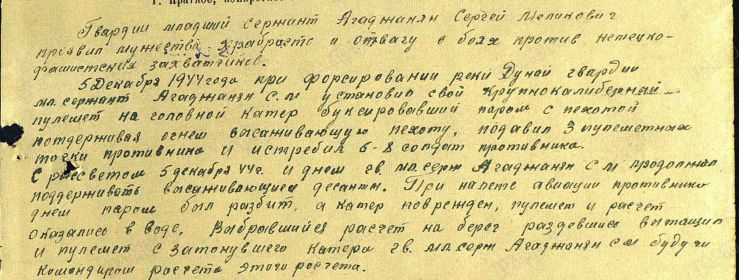 Г. Краткое,
Гвардии младший сержант Агаджанян Сергей Меликович
проявил мужество, храбрость и отвагу в боях против немецко-
фашистских захватчиков.
5 Декабря 1944 года при форсировании реки Дунай гвардии
мл. сержант Агаджанян С.М установил свой крупнокалиберный
пулемет на головной катер буксировавший паром с пехотой
потдерживая огнем высаживающую пехоту, подавил 3 пулеметных
точки противника и истребил 6-8 солдат противника.
С рассветом 5 декабря 44 г. и днем гв. мл. серж Агаджанян С М продолжал
поддерживать высаживающиеся десанты. При налете авиации противника
днем паром был разбит, а катер поврежден, пулемет и расчет
оказались в воде. Выбравшийся расчет на берег раздевшись вытащил
и пулемет с затонувшего катера гв. мл. серж Агаджанян С М будучи
командиром расчета этого расчета.